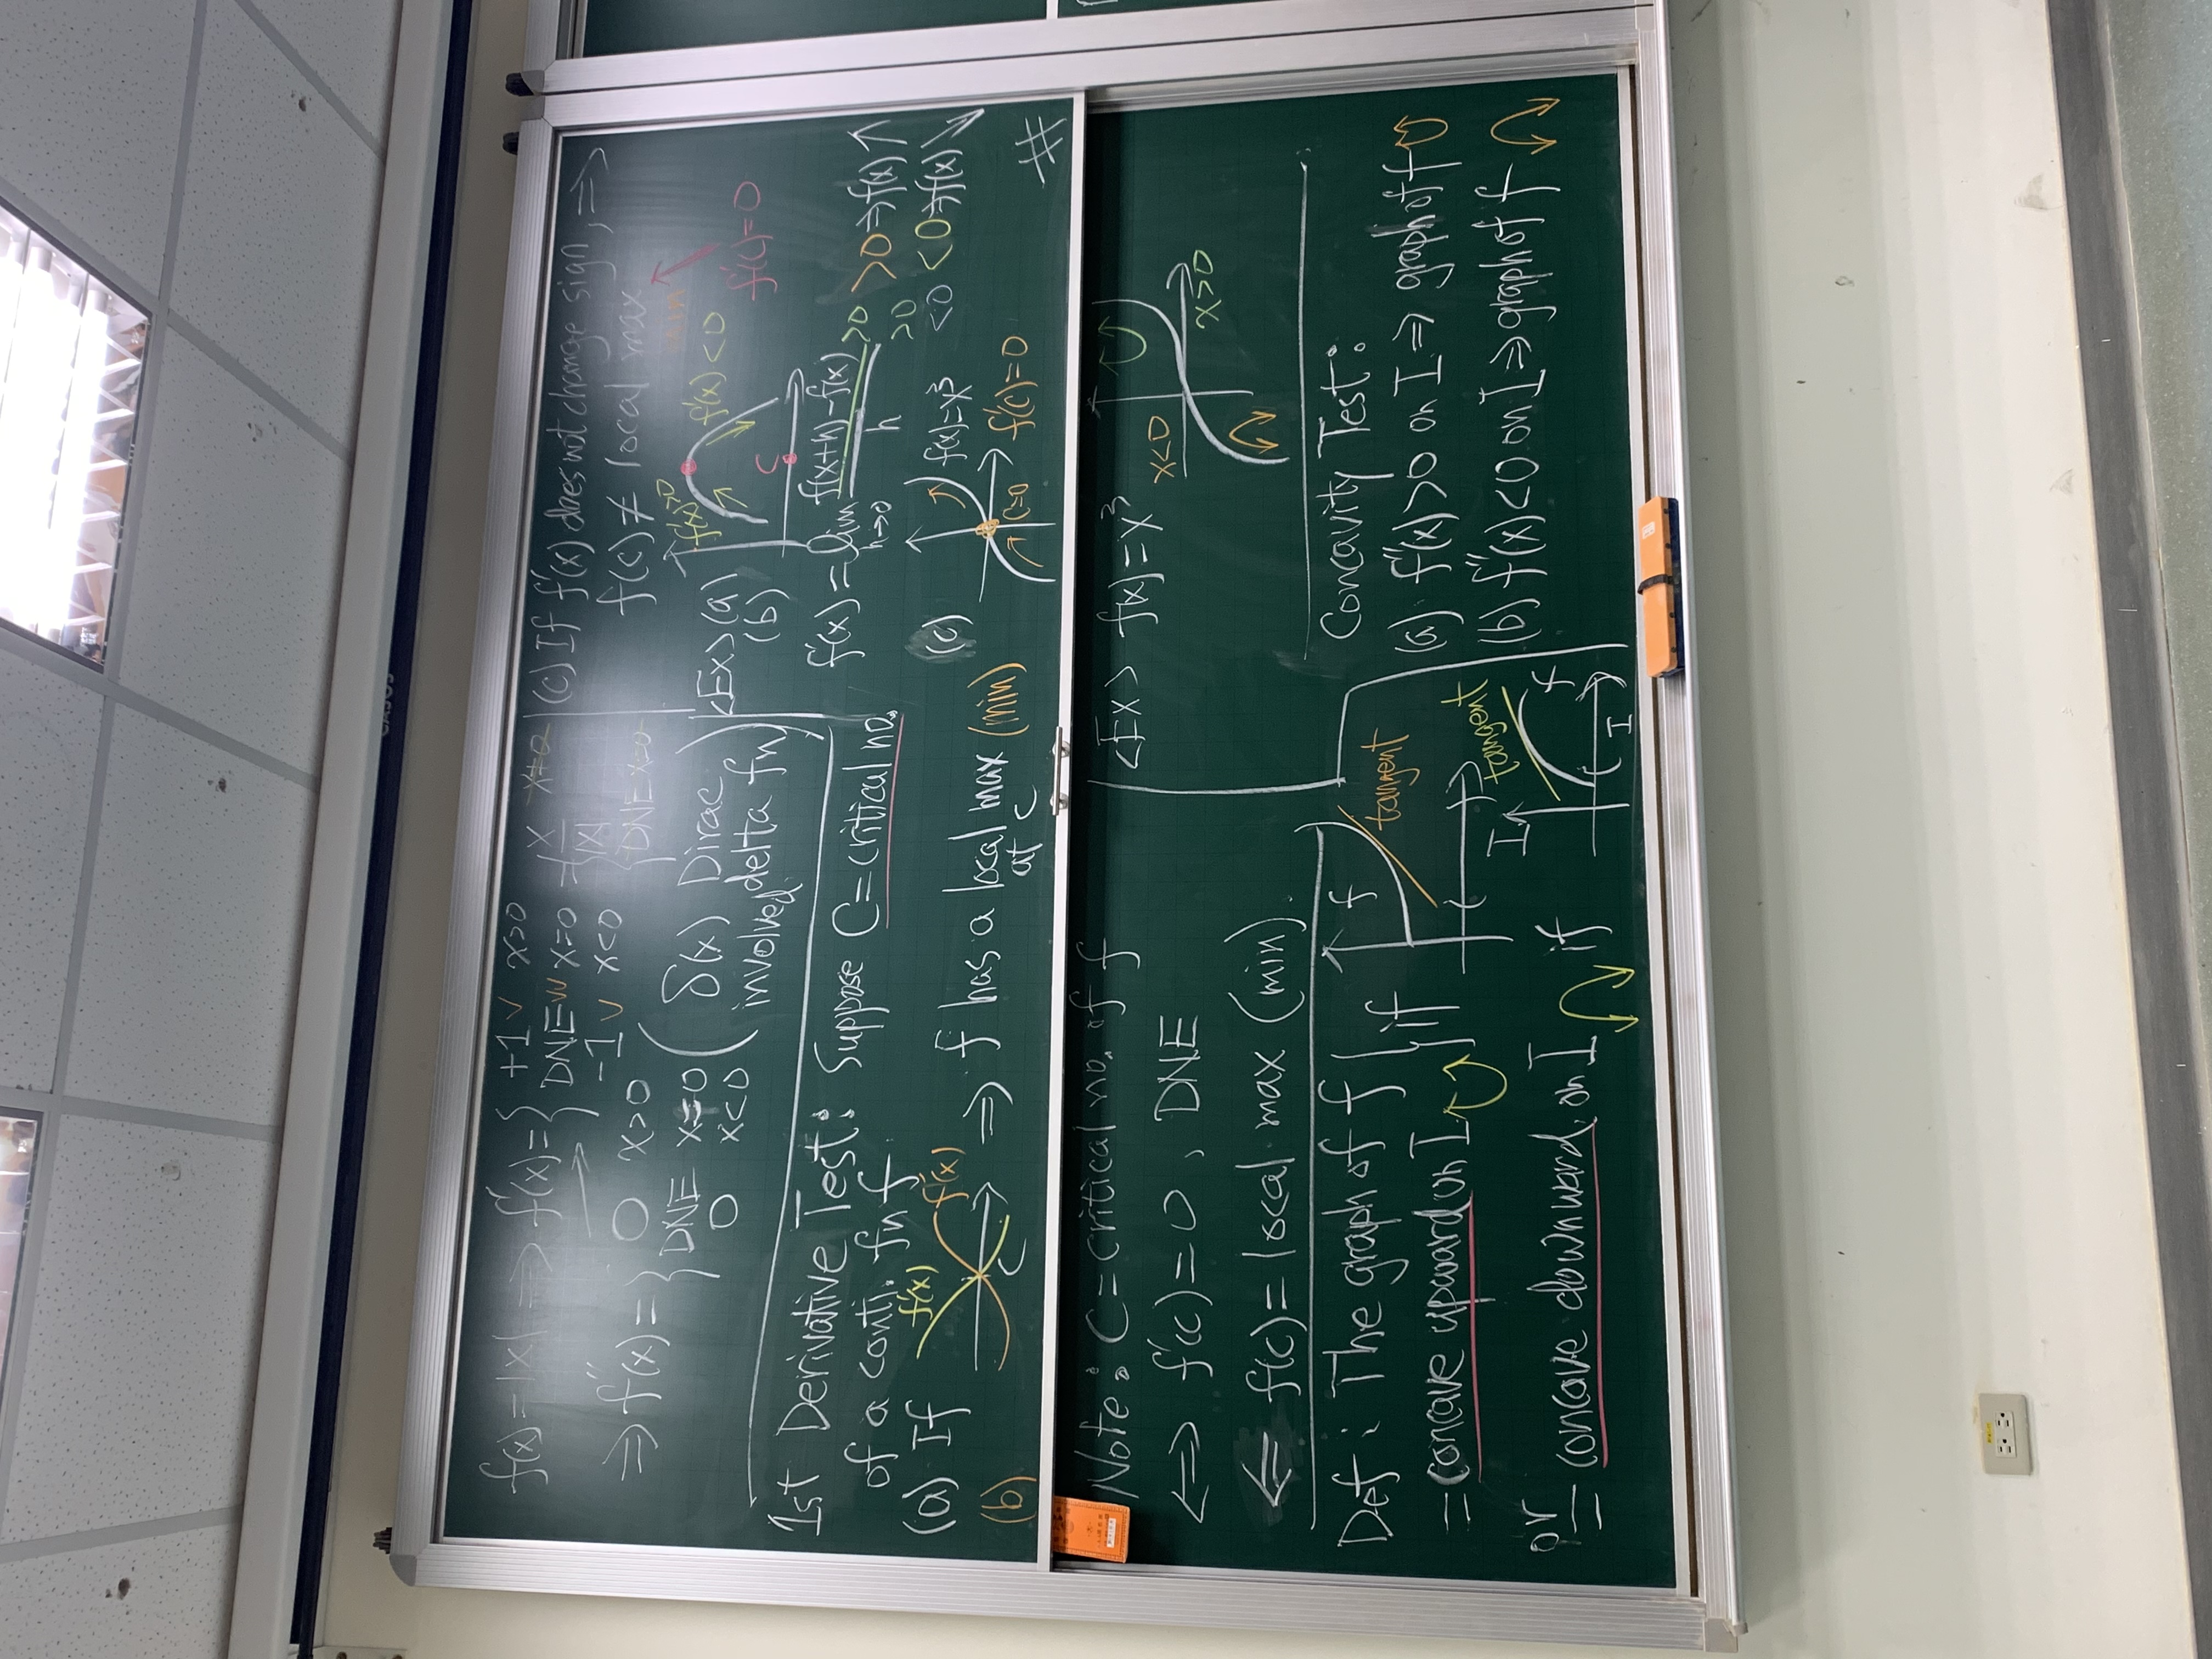 CASOS
f(x)=|x| ⇒ f'(x)={ +1 ✓ x>0
DNE ✓✓ x=0
-1 ✓ x<0
={ x/|x| x≠0
DNE x=0
⇒ f''(x)={ 0 x>0
DNE x=0
0 x<0
( δ(x) Dirac
involved delta fn )
1st Derivative Test: Suppose C=critical no.
of a conti. fn f.
(a) If f'(x) f'(x) ⇒ f has a local max (min)
(b) C at c
(c) If f'(x) does not change sign, ⇒
f(c) ≠ local max
min
f'(c)=0
<Ex> (a) f'(x)>0 f'(x)<0
(b) C
f'(x) = lim h→0 f(x+h)-f(x) / h >0 >0 ⇒ f(x) ↑
>0
<0 <0 ⇒ f(x) ↓
(c) f(x)=x³
C=0 f'(c)=0
#
Note: C = critical no. of f
⟺ f'(c)=0, DNE
⇐ f(c)= local max (min).
Def: The graph of f } if f tangent
= concave upward on I
I
or
= concave downward on I if tangent f
I
<Ex> f(x)=x³
x<0
x>0
Concavity Test:
(a) f''(x)>0 on I ⇒ graph of f
(b) f''(x)<0 on I ⇒ graph of f